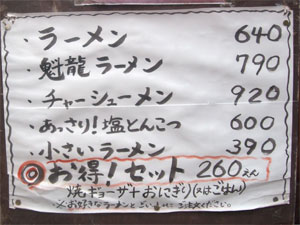 ・ラーメン 640
・魁龍ラーメン 790
・チャーシューメン 920
・あっさり!塩とんこつ 600
・小さいラーメン 390
◎お得!セット 260えん
焼ギョーザ+おにぎり(又はごはん)
※お好きなラーメンと ご注文ください。